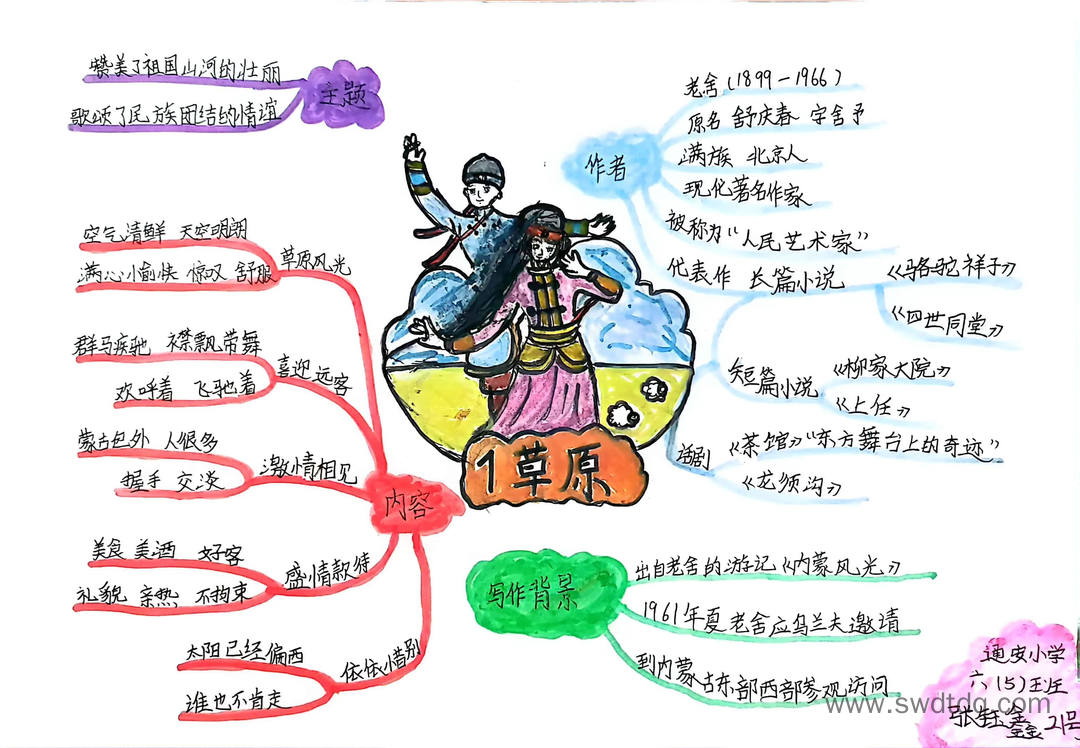 赞美了祖国山河的壮丽
歌颂了民族团结的情谊
主题
作者
老舍(1899-1966)
原名 舒庆春 字舍予
满族 北京人
现代著名作家
被称为“人民艺术家”
代表作 长篇小说
《骆驼祥子》
《四世同堂》
短篇小说
《柳家大院》
《上任》
话剧
《茶馆》“东方舞台上的奇迹”
《龙须沟》
1草原
内容
草原风光
空气清鲜 天空明朗
满心愉快 惊叹 舒服
喜迎远客
群马疾驰 襟飘带舞
欢呼着 飞驰着
激情相见
蒙古包外 人很多
握手 交谈
盛情款待
美食 美酒 好客
礼貌 亲热 不拘束
依依惜别
太阳已经偏西
谁也不肯走
写作背景
出自老舍的游记《内蒙风光》
1961年夏老舍应乌兰夫邀请
到内蒙古东部西部参观访问
通安小学
六(5)班
张钰鑫 21号
www.swdtdq.com